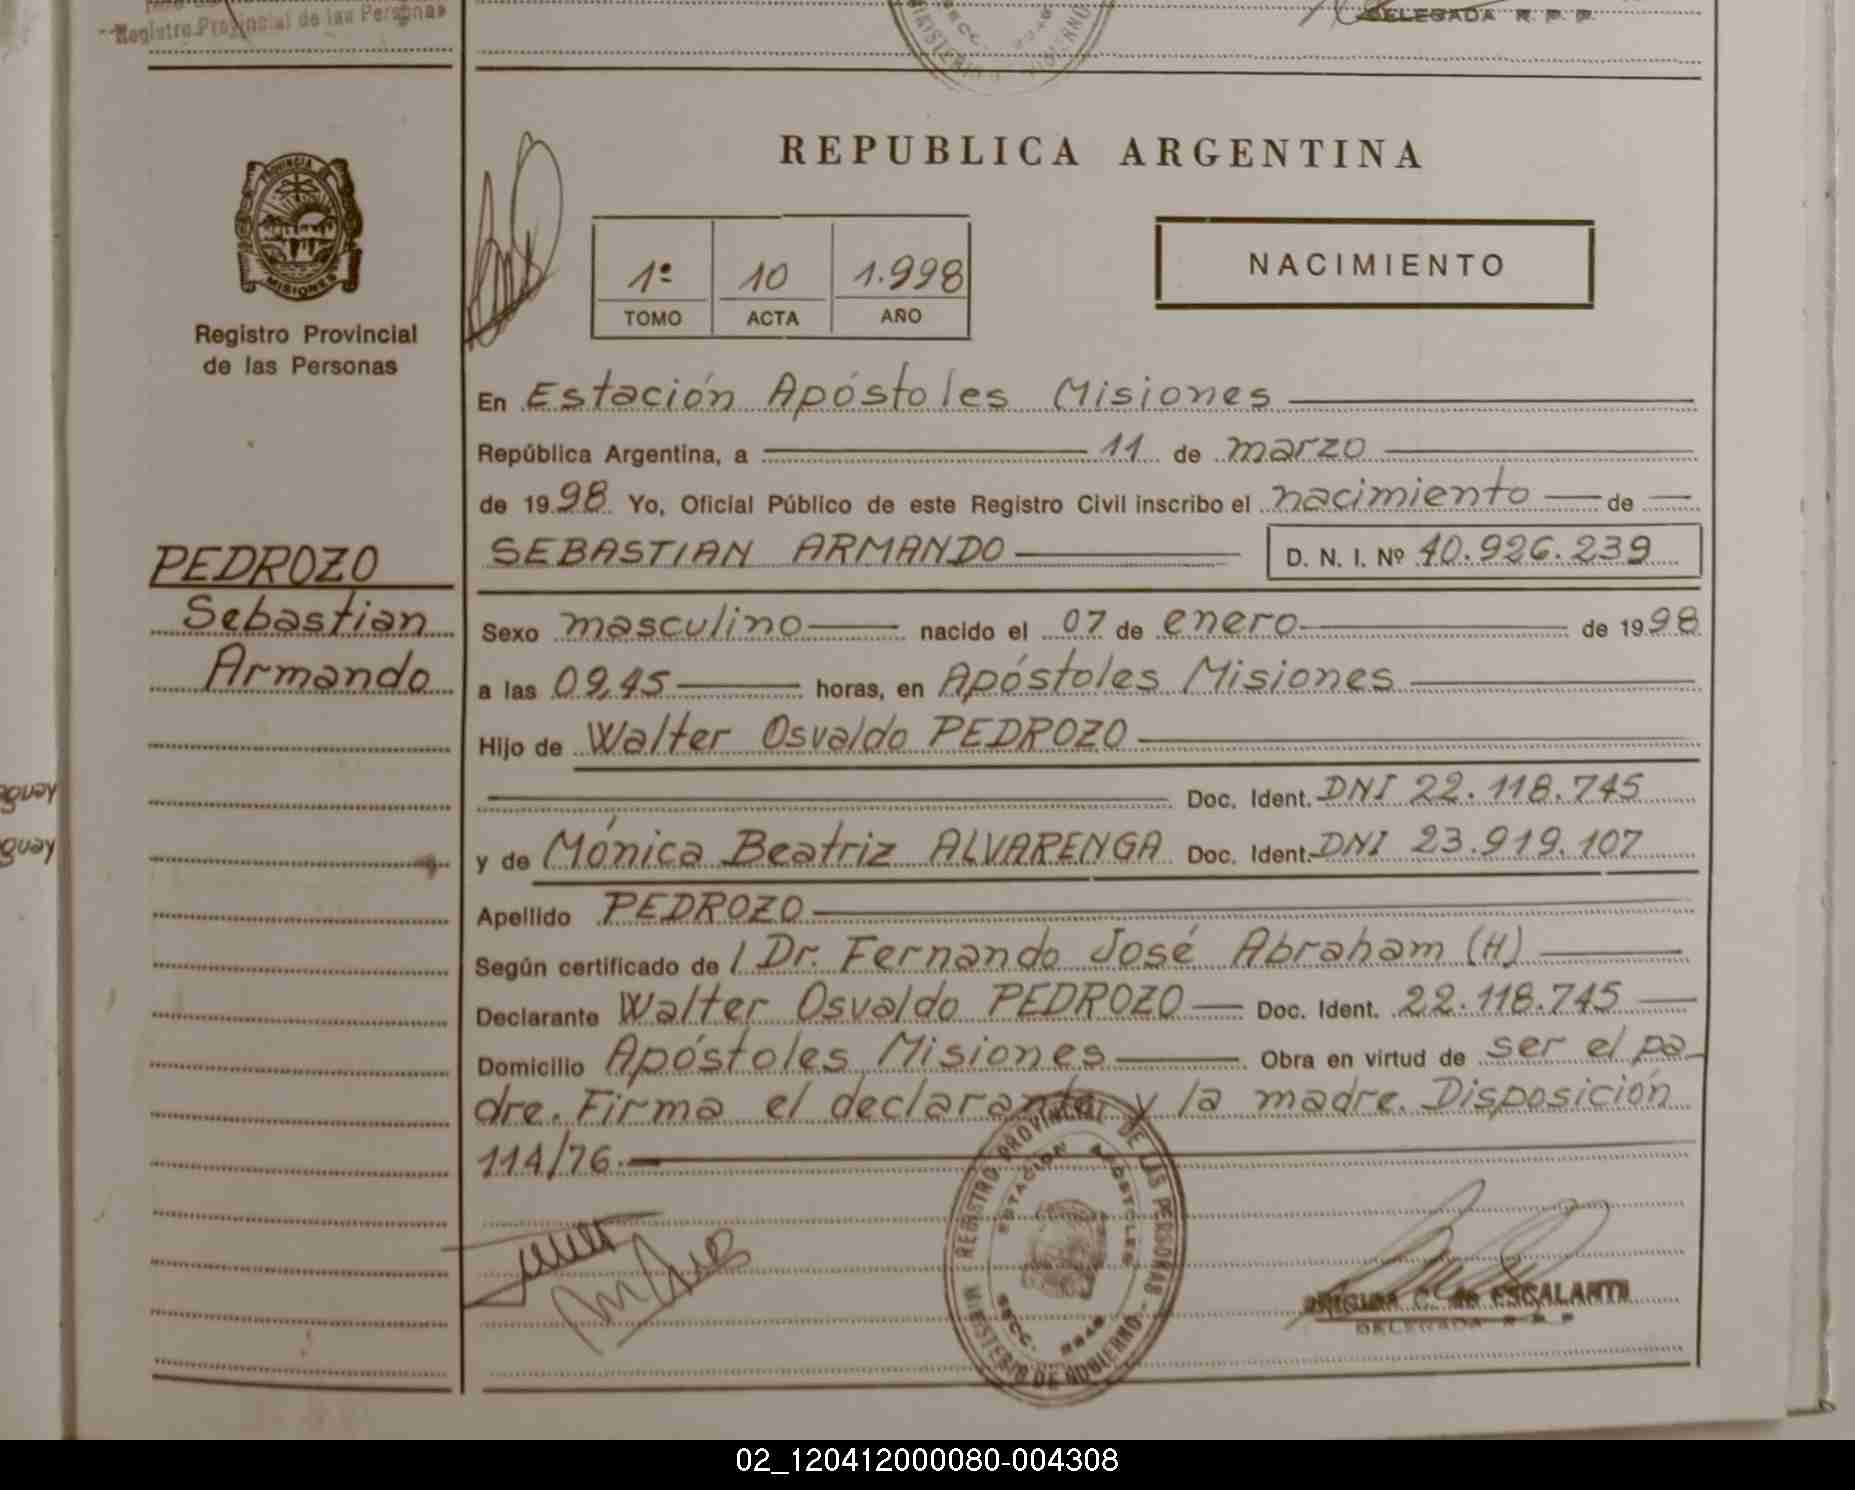 Registro Provincial de las Personas
DELEGADA R. P. P.
REPUBLICA ARGENTINA
PROVINCIA
MISIONES
Registro Provincial
de las Personas
1º 10 1.998
TOMO ACTA AÑO
NACIMIENTO
En Estación Apóstoles Misiones
República Argentina, a 11 de marzo
de 1998 Yo, Oficial Público de este Registro Civil inscribo el nacimiento de
PEDROZO
Sebastian
Armando
SEBASTIAN ARMANDO D. N. I. Nº 40.926.239
Sexo masculino nacido el 07 de enero de 1998
a las 09,45 horas, en Apóstoles Misiones
Hijo de Walter Osvaldo PEDROZO
Doc. Ident. DNI 22.118.745
y de Mónica Beatriz ALVARENGA Doc. Ident. DNI 23.919.107
Apellido PEDROZO
Según certificado de / Dr. Fernando José Abraham (H)
Declarante Walter Osvaldo PEDROZO Doc. Ident. 22.118.745
Domicilio Apóstoles Misiones Obra en virtud de ser el pa_
dre. Firma el declarante y la madre. Disposición
114/76.
REGISTRO PROVINCIAL DE LAS PERSONAS
MINISTERIO DE GOBIERNO
ESTACION APOSTOLES
SECC.
C. de ESCALANTE
DELEGADA R. P. P.
02_120412000080-004308